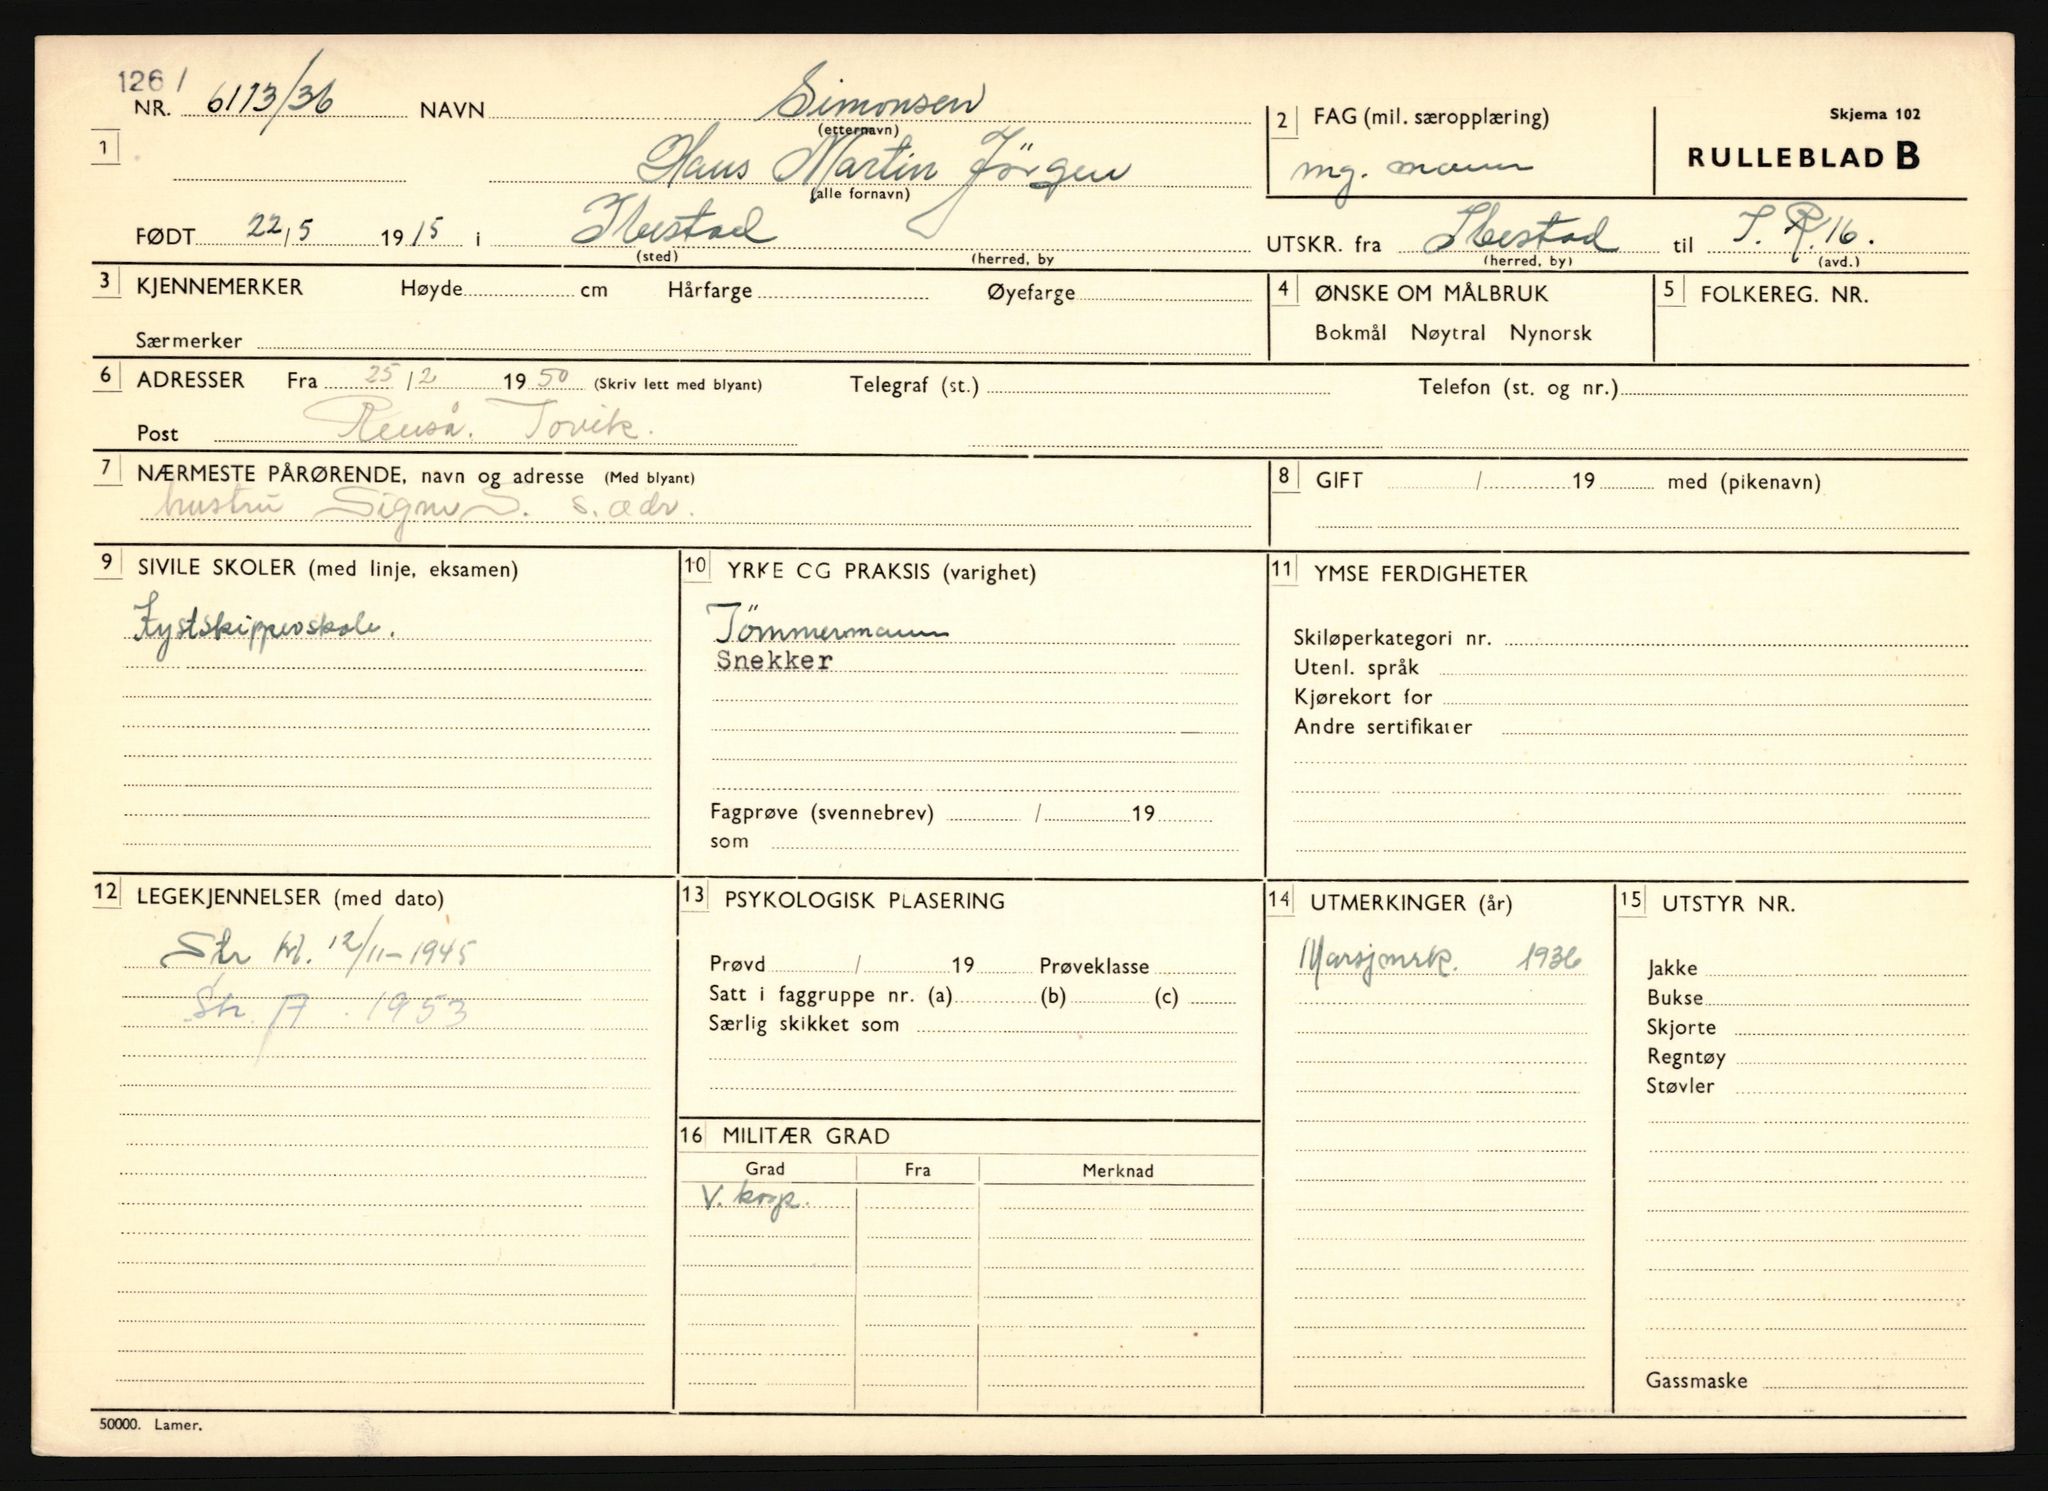 126 /
NR. 6173/36 NAVN Simonsen
(etternavn)
2 FAG (mil. særopplæring)
Skjema 102
RULLEBLAD B
1
Hans Martin Jörgen
(alle fornavn)
mg. mann
FØDT 22/5 1915 i Ibestad
(sted) (herred, by
UTSKR. fra Ibestad til I.R. 16.
(herred, by) (avd.)
3 KJENNEMERKER Høyde cm Hårfarge Øyefarge
Særmerker
4 ØNSKE OM MÅLBRUK
Bokmål Nøytral Nynorsk
5 FOLKEREG. NR.
6 ADRESSER Fra 25/2 1950 (Skriv lett med blyant) Telegraf (st.) Telefon (st. og nr.)
Post Renså. Tovik.
7 NÆRMESTE PÅRØRENDE, navn og adresse (Med blyant)
hustru Signe S. s. adr.
8 GIFT / 19 med (pikenavn)
9 SIVILE SKOLER (med linje, eksamen)
Kystskipperskole.
10 YRKE CG PRAKSIS (varighet)
Tömmermann
Snekker
Fagprøve (svennebrev) / 19
som
11 YMSE FERDIGHETER
Skiløperkategori nr.
Utenl. språk
Kjørekort for
Andre sertifikater
12 LEGEKJENNELSER (med dato)
Str kl. 12/11-1945
Str. A. 1953
13 PSYKOLOGISK PLASERING
Prøvd / 19 Prøveklasse
Satt i faggruppe nr. (a) (b) (c)
Særlig skikket som
14 UTMERKINGER (år)
Marsjmrk. 1936
15 UTSTYR NR.
Jakke
Bukse
Skjorte
Regntøy
Støvler
Gassmaske
16 MILITÆR GRAD
Grad Fra Merknad
V. korp.
50000. Lamer.